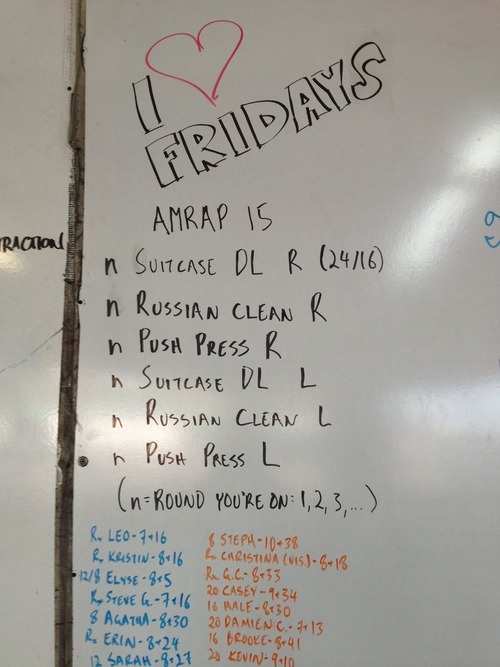 I
FRIDAYS
AMRAP 15
n SUITCASE DL R (24/16)
n RUSSIAN CLEAN R
n PUSH PRESS R
n SUITCASE DL L
n RUSSIAN CLEAN L
n PUSH PRESS L
(n=ROUND YOU'RE ON: 1, 2, 3, ...)
RACTION
Rx LEO - 7+16
Rx KRISTIN - 8+16
12/8 ELYSE - 8+5
Rx STEVE G. - 7+16
8 AGATHA - 8+30
Rx ERIN - 8+24
12 SARAH - 8+27
8 STEPH - 10+38
Rx CHRISTINA (VIS.) - 8+18
Rx G.C. - 8+33
20 CASEY - 9+34
16 HALE - 8+30
20 DAMIEN C. - 7+13
16 BROOKE - 8+41
20 KEVIN - 9+10